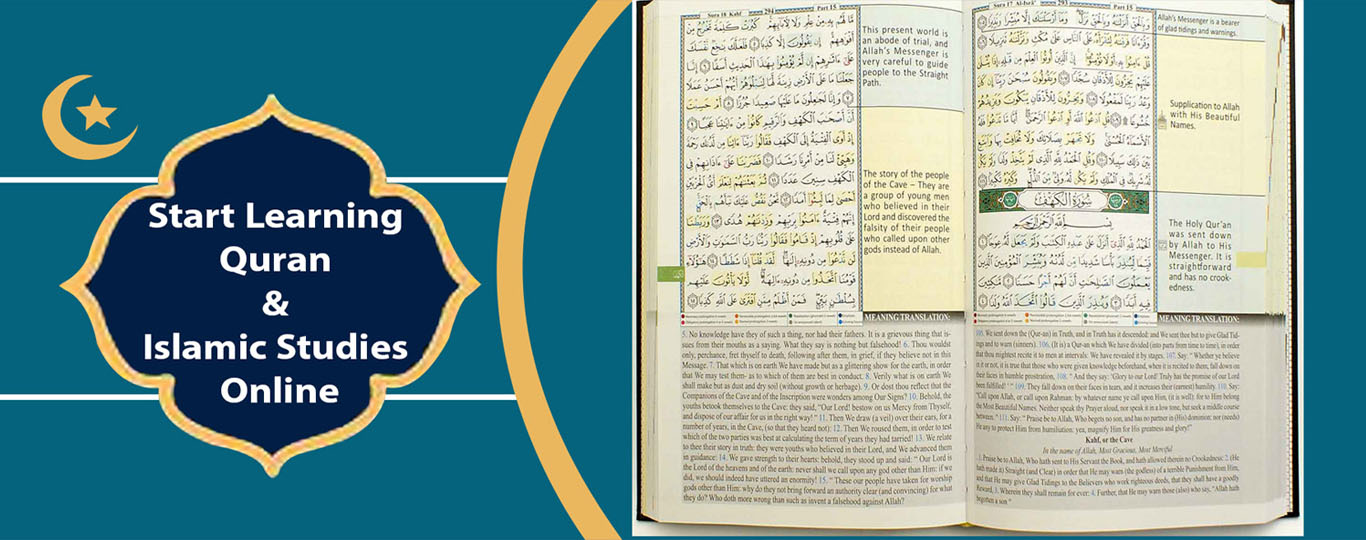 Start Learning
Quran
&
Islamic Studies
Online
Sura 18 Kahf 294 Part 15
مَّا لَهُم بِهِۦ مِنْ عِلْمٍ وَلَا لِـَٔابَآئِهِمْ كَبُرَتْ كَلِمَةً تَخْرُجُ مِنْ
أَفْوَٰهِهِمْ إِن يَقُولُونَ إِلَّا كَذِبًا ٥ فَلَعَلَّكَ بَٰخِعٌ نَّفْسَكَ
عَلَىٰٓ ءَاثَٰرِهِمْ إِن لَّمْ يُؤْمِنُوا۟ بِهَٰذَا ٱلْحَدِيثِ أَسَفًا ٦ إِنَّا
جَعَلْنَا مَا عَلَى ٱلْأَرْضِ زِينَةً لَّهَا لِنَبْلُوَهُمْ أَيُّهُمْ أَحْسَنُ عَمَلًا
٧ وَإِنَّا لَجَٰعِلُونَ مَا عَلَيْهَا صَعِيدًا جُرُزًا ٨ أَمْ حَسِبْتَ
أَنَّ أَصْحَٰبَ ٱلْكَهْفِ وَٱلرَّقِيمِ كَانُوا۟ مِنْ ءَايَٰتِنَا عَجَبًا ٩
إِذْ أَوَى ٱلْفِتْيَةُ إِلَى ٱلْكَهْفِ فَقَالُوا۟ رَبَّنَآ ءَاتِنَا مِن لَّدُنكَ رَحْمَةً
وَهَيِّئْ لَنَا مِنْ أَمْرِنَا رَشَدًا ١٠ فَضَرَبْنَا عَلَىٰٓ ءَاذَانِهِمْ فِى
ٱلْكَهْفِ سِنِينَ عَدَدًا ١١ ثُمَّ بَعَثْنَٰهُمْ لِنَعْلَمَ أَىُّ ٱلْحِزْبَيْنِ
أَحْصَىٰ لِمَا لَبِثُوٓا۟ أَمَدًا ١٢ نَّحْنُ نَقُصُّ عَلَيْكَ نَبَأَهُم بِٱلْحَقِّ
إِنَّهُمْ فِتْيَةٌ ءَامَنُوا۟ بِرَبِّهِمْ وَزِدْنَٰهُمْ هُدًى ١٣ وَرَبَطْنَا
عَلَىٰ قُلُوبِهِمْ إِذْ قَامُوا۟ فَقَالُوا۟ رَبُّنَا رَبُّ ٱلسَّمَٰوَٰتِ وَٱلْأَرْضِ
لَن نَّدْعُوَا۟ مِن دُونِهِۦٓ إِلَٰهًا لَّقَدْ قُلْنَآ إِذًا شَطَطًا ١٤ هَٰٓؤُلَآءِ
قَوْمُنَا ٱتَّخَذُوا۟ مِن دُونِهِۦٓ ءَالِهَةً لَّوْلَا يَأْتُونَ عَلَيْهِم
بِسُلْطَٰنٍۭ بَيِّنٍ فَمَنْ أَظْلَمُ مِمَّنِ ٱفْتَرَىٰ عَلَى ٱللَّهِ كَذِبًا ١٥
This present world is
an abode of trial, and
Allah's Messenger is
very careful to guide
people to the Straight
Path.
The story of the people
of the Cave – They are
a group of young men
who believed in their
Lord and discovered the
falsity of their people
who called upon other
gods instead of Allah.
MEANING TRANSLATION:
5. No knowledge have they of such a thing, nor had their fathers. It is a grievous thing that is-
sues from their mouths as a saying. What they say is nothing but falsehood! 6. Thou wouldst
only, perchance, fret thyself to death, following after them, in grief, if they believe not in this
Message. 7. That which is on earth We have made but as a glittering show for the earth, in order
that We may test them- as to which of them are best in conduct. 8. Verily what is on earth We
shall make but as dust and dry soil (without growth or herbage). 9. Or dost thou reflect that the
Companions of the Cave and of the Inscription were wonders among Our Signs? 10. Behold, the
youths betook themselves to the Cave: they said, "Our Lord! bestow on us Mercy from Thyself,
and dispose of our affair for us in the right way!" 11. Then We draw (a veil) over their ears, for a
number of years, in the Cave, (so that they heard not): 12. Then We roused them, in order to test
which of the two parties was best at calculating the term of years they had tarried! 13. We relate
to thee their story in truth: they were youths who believed in their Lord, and We advanced them
in guidance: 14. We gave strength to their hearts: behold, they stood up and said: " Our Lord is
the Lord of the heavens and of the earth: never shall we call upon any god other than Him: if we
did, we should indeed have uttered an enormity! 15. " These our people have taken for worship
gods other than Him: why do they not bring forward an authority clear (and convincing) for what
they do? Who doth more wrong than such as invent a falsehood against Allah?
Sura 17 Al-Isrā' 293 Part 15
وَبِٱلْحَقِّ أَنزَلْنَٰهُ وَبِٱلْحَقِّ نَزَلَ وَمَآ أَرْسَلْنَٰكَ إِلَّا مُبَشِّرًا وَنَذِيرًا ١٠٥
وَقُرْءَانًا فَرَقْنَٰهُ لِتَقْرَأَهُۥ عَلَى ٱلنَّاسِ عَلَىٰ مُكْثٍ وَنَزَّلْنَٰهُ تَنزِيلًا ١٠٦
قُلْ ءَامِنُوا۟ بِهِۦٓ أَوْ لَا تُؤْمِنُوٓا۟ إِنَّ ٱلَّذِينَ أُوتُوا۟ ٱلْعِلْمَ مِن قَبْلِهِۦٓ إِذَا يُتْلَىٰ
عَلَيْهِمْ يَخِرُّونَ لِلْأَذْقَانِ سُجَّدًا ١٠٧ وَيَقُولُونَ سُبْحَٰنَ رَبِّنَآ إِن كَانَ
وَعْدُ رَبِّنَا لَمَفْعُولًا ١٠٨ وَيَخِرُّونَ لِلْأَذْقَانِ يَبْكُونَ وَيَزِيدُهُمْ
خُشُوعًا ١٠٩ قُلِ ٱدْعُوا۟ ٱللَّهَ أَوِ ٱدْعُوا۟ ٱلرَّحْمَٰنَ أَيًّا مَّا تَدْعُوا۟ فَلَهُ
ٱلْأَسْمَآءُ ٱلْحُسْنَىٰ وَلَا تَجْهَرْ بِصَلَاتِكَ وَلَا تُخَافِتْ بِهَا وَٱبْتَغِ
بَيْنَ ذَٰلِكَ سَبِيلًا ١١٠ وَقُلِ ٱلْحَمْدُ لِلَّهِ ٱلَّذِى لَمْ يَتَّخِذْ وَلَدًا وَلَمْ يَكُن
لَّهُۥ شَرِيكٌ فِى ٱلْمُلْكِ وَلَمْ يَكُن لَّهُۥ وَلِىٌّ مِّنَ ٱلذُّلِّ وَكَبِّرْهُ تَكْبِيرًا ١١١
سُورَةُ الْكَهْفِ
بِسْمِ ٱللَّهِ ٱلرَّحْمَٰنِ ٱلرَّحِيمِ
ٱلْحَمْدُ لِلَّهِ ٱلَّذِىٓ أَنزَلَ عَلَىٰ عَبْدِهِ ٱلْكِتَٰبَ وَلَمْ يَجْعَل لَّهُۥ عِوَجَا ١
قَيِّمًا لِّيُنذِرَ بَأْسًا شَدِيدًا مِّن لَّدُنْهُ وَيُبَشِّرَ ٱلْمُؤْمِنِينَ ٱلَّذِينَ
يَعْمَلُونَ ٱلصَّٰلِحَٰتِ أَنَّ لَهُمْ أَجْرًا حَسَنًا ٢ مَّٰكِثِينَ
فِيهِ أَبَدًا ٣ وَيُنذِرَ ٱلَّذِينَ قَالُوا۟ ٱتَّخَذَ ٱللَّهُ وَلَدًا ٤
Allah's Messenger is a bearer
of glad tidings and warnings.
Supplication to Allah
with His Beautiful
Names.
The Holy Qur'an
was sent down
by Allah to His
Messenger. It is
straightforward
and has no crook-
edness.
MEANING TRANSLATION:
105. We sent down the (Qur-an) in Truth, and in Truth has it descended: and We sent thee but to give Glad Tid-
ings and to warn (sinners). 106. (It is) a Qur-an which We have divided (into parts from time to time), in order
that thou mightest recite it to men at intervals: We have revealed it by stages. 107. Say: " Whether ye believe
in it or not, it is true that those who were given knowledge beforehand, when it is recited to them, fall down on
their faces in humble prostration, 108. " And they say: 'Glory to our Lord! Truly has the promise of our Lord
been fulfilled!' " 109. They fall down on their faces in tears, and it increases their (earnest) humility. 110. Say:
"Call upon Allah, or call upon Rahman: by whatever name ye call upon Him, (it is well): for to Him belong
the Most Beautiful Names. Neither speak thy Prayer aloud, nor speak it in a low tone, but seek a middle course
between." 111. Say: " Praise be to Allah, Who begets no son, and has no partner in (His) dominion: nor (needs)
He any to protect Him from humiliation: yea, magnify Him for His greatness and glory!"
Kahf, or the Cave
In the name of Allah, Most Gracious, Most Merciful
1. Praise be to Allah, Who hath sent to His Servant the Book, and hath allowed therein no Crookedness: 2. (He
hath made it) Straight (and Clear) in order that He may warn (the godless) of a terrible Punishment from Him,
and that He may give Glad Tidings to the Believers who work righteous deeds, that they shall have a goodly
Reward, 3. Wherein they shall remain for ever: 4. Further, that He may warn those (also) who say, "Allah hath
begotten a son "